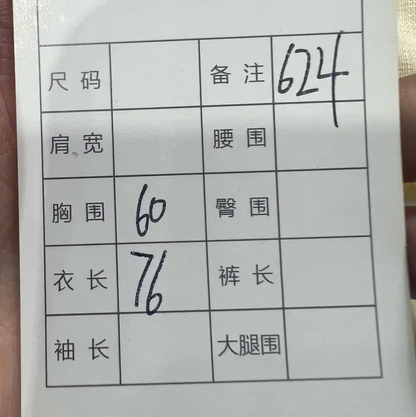 尺码 备注 624
肩宽 腰围
胸围 60 臀围
衣长 76 裤长
袖长 大腿围